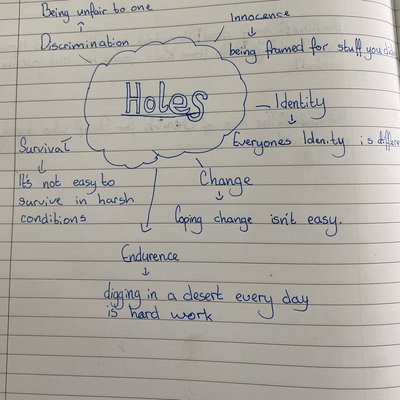 Being unfair to one
Discrimination
Innocence
being framed for stuff you
Holes
Identity
Everyones Idenity is
Survival
It's not easy to
survive in harsh
conditions
Change
Coping change isn't easy.
Endurence
digging in a desert every day
is hard work